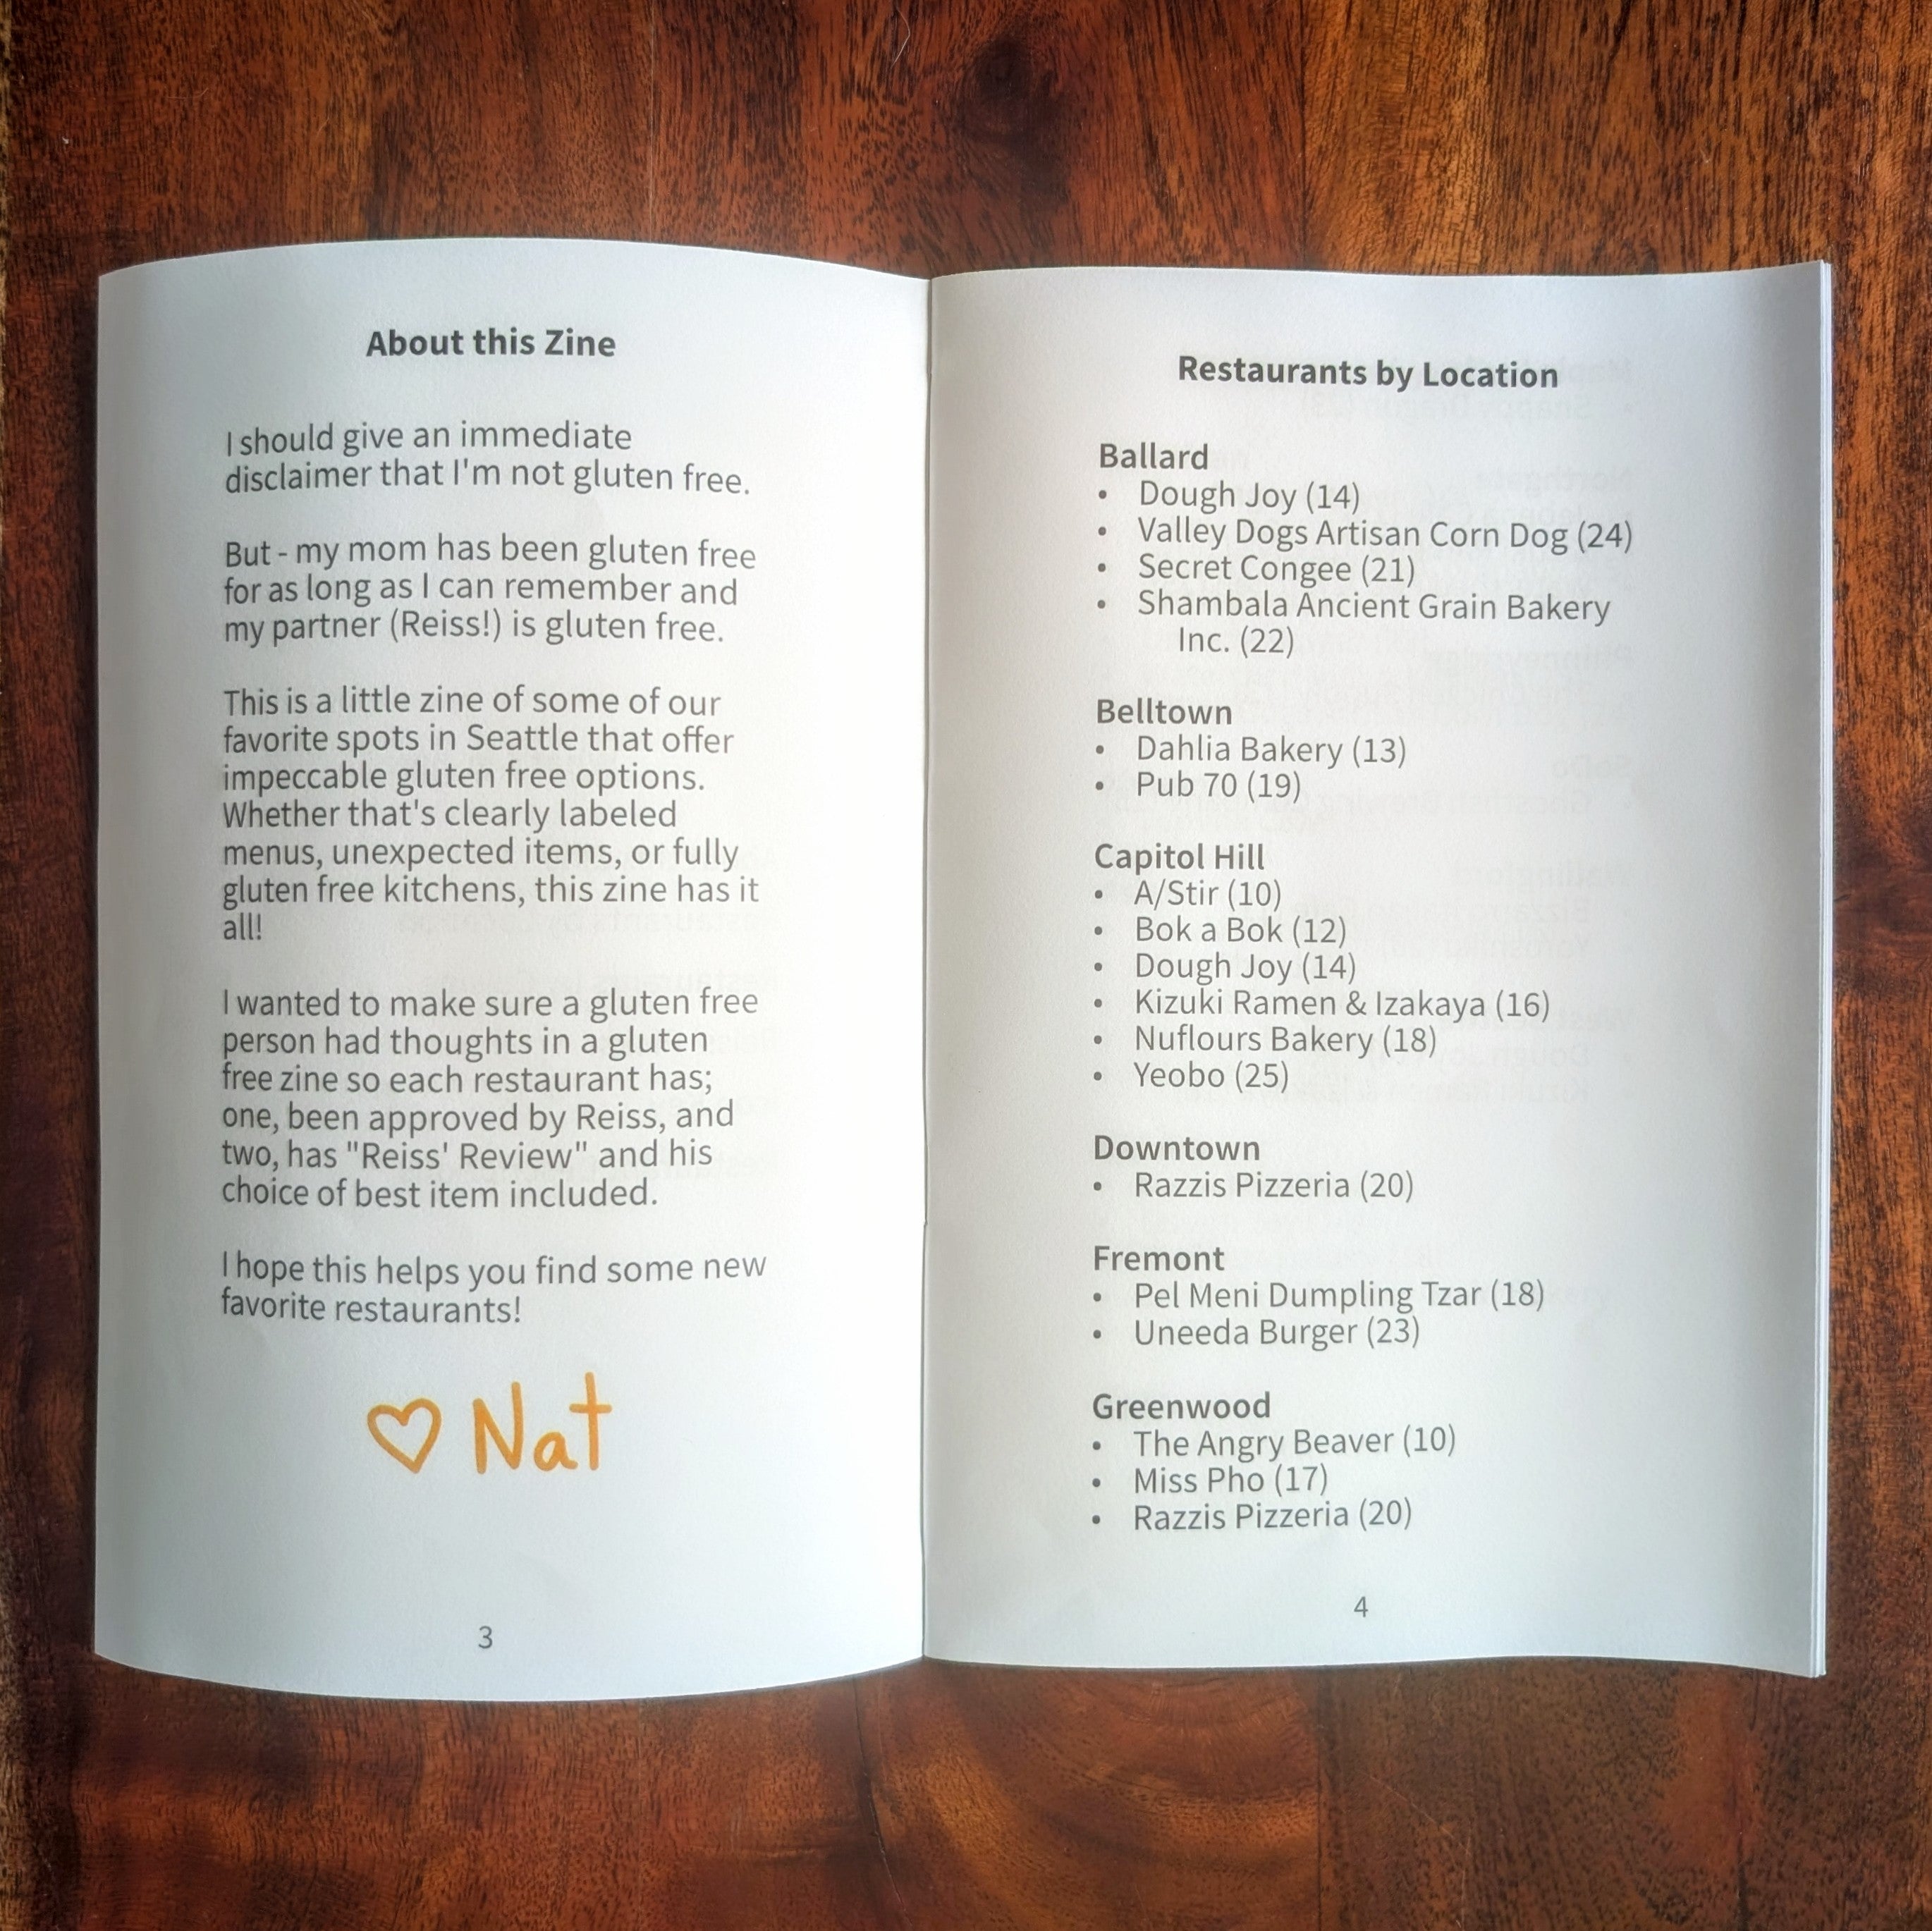 About this Zine
I should give an immediate
disclaimer that I'm not gluten free.
But - my mom has been gluten free
for as long as I can remember and
my partner (Reiss!) is gluten free.
This is a little zine of some of our
favorite spots in Seattle that offer
impeccable gluten free options.
Whether that's clearly labeled
menus, unexpected items, or fully
gluten free kitchens, this zine has it
all!
I wanted to make sure a gluten free
person had thoughts in a gluten
free zine so each restaurant has;
one, been approved by Reiss, and
two, has "Reiss' Review" and his
choice of best item included.
I hope this helps you find some new
favorite restaurants!
♡ Nat
3
Restaurants by Location
Ballard
• Dough Joy (14)
• Valley Dogs Artisan Corn Dog (24)
• Secret Congee (21)
• Shambala Ancient Grain Bakery
Inc. (22)
Belltown
• Dahlia Bakery (13)
• Pub 70 (19)
Capitol Hill
• A/Stir (10)
• Bok a Bok (12)
• Dough Joy (14)
• Kizuki Ramen & Izakaya (16)
• Nuflours Bakery (18)
• Yeobo (25)
Downtown
• Razzis Pizzeria (20)
Fremont
• Pel Meni Dumpling Tzar (18)
• Uneeda Burger (23)
Greenwood
• The Angry Beaver (10)
• Miss Pho (17)
• Razzis Pizzeria (20)
4